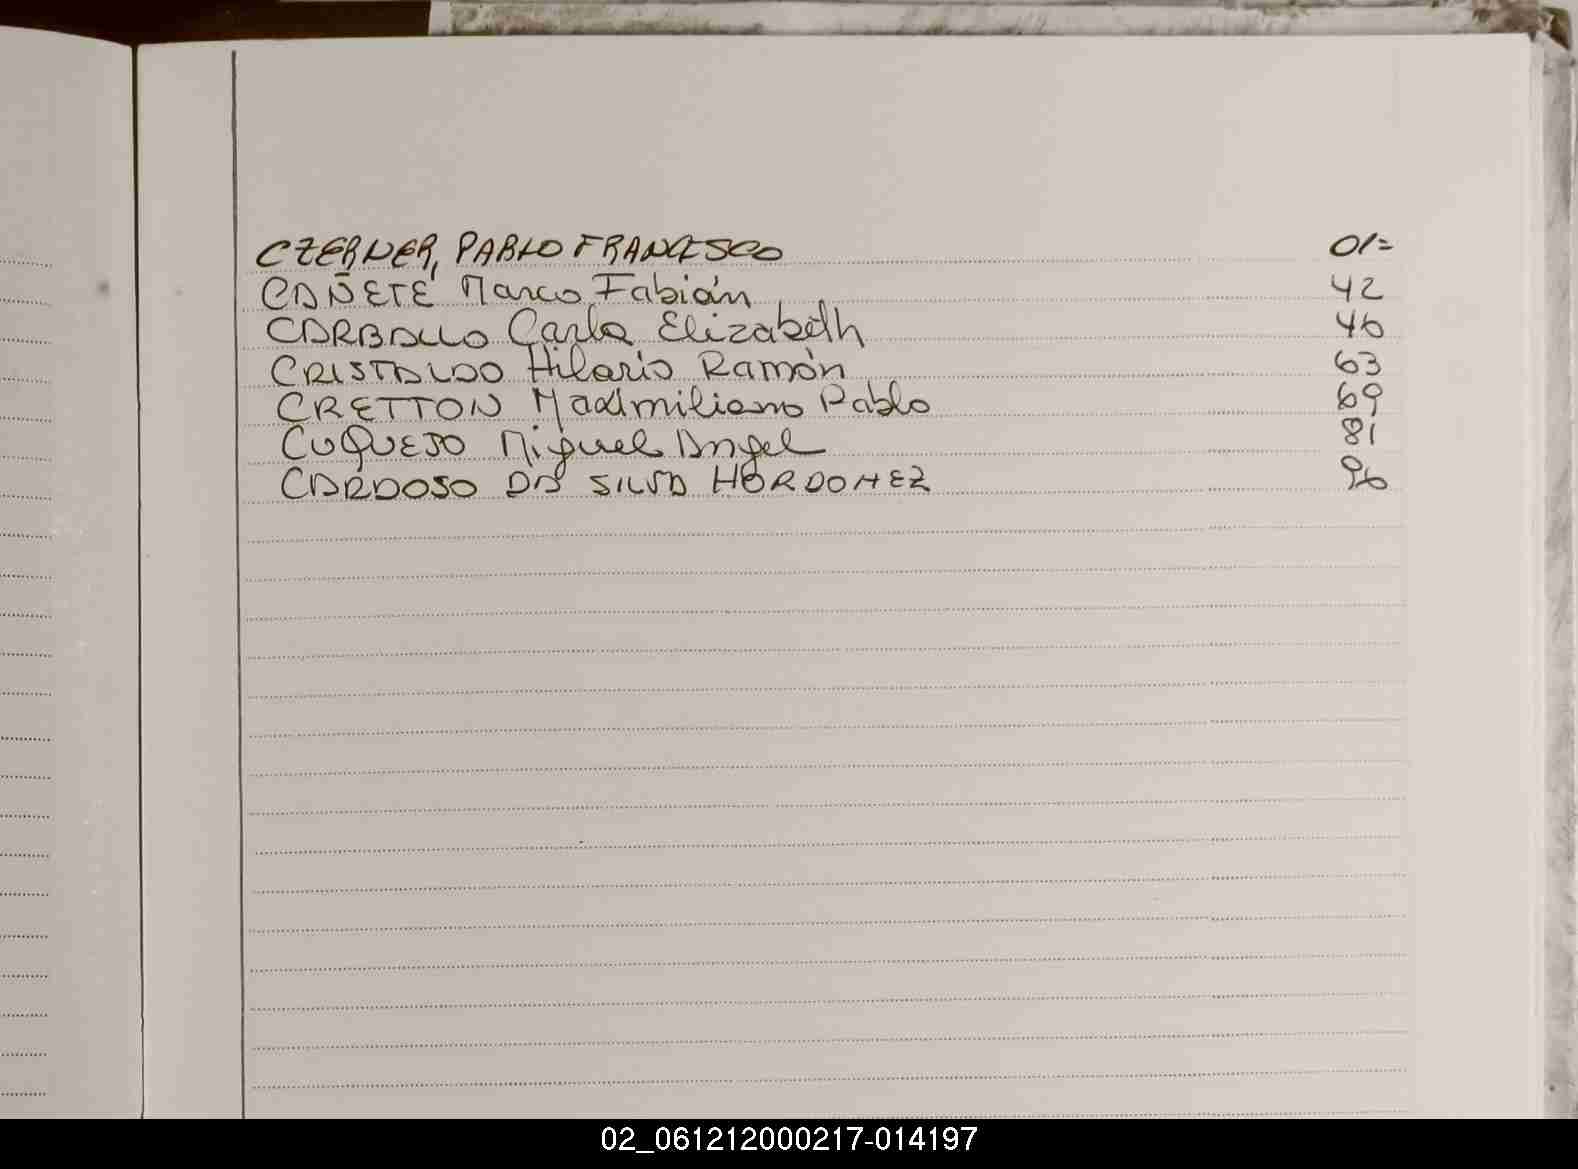 CZERNER, PABLO FRANCESCO 01=
CAÑETE Marco Fabián 42
CARBALLO Carla Elizabeth 46
CRISTALDO Hilario Ramón 63
CRETTON Maximiliano Pablo 69
CUQUEJO Miguel Angel 81
CARDOSO DA SILVA HORDOHEZ 96
02_061212000217-014197